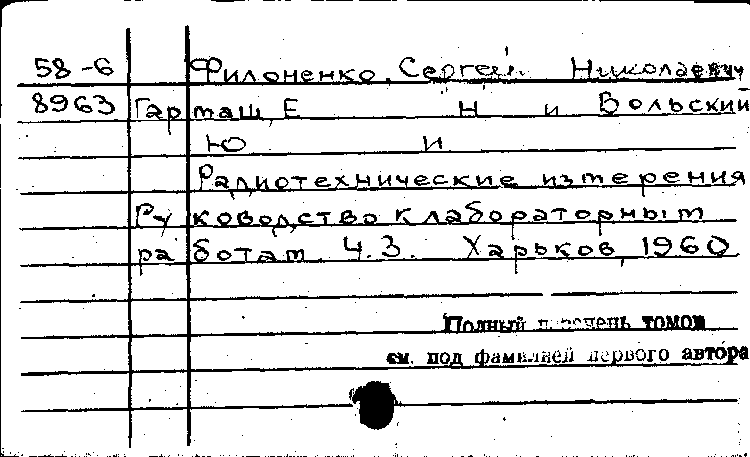 58-6 Филоненко, Сергей Николаевич
8963 Гарташ, Е Н и Вольский
Ю И
Радиотехнические измерения
Руководство к лабораторным
работам. Ч.3. Харьков, 1960
Полный перечень томов
см. под фамилией первого автора